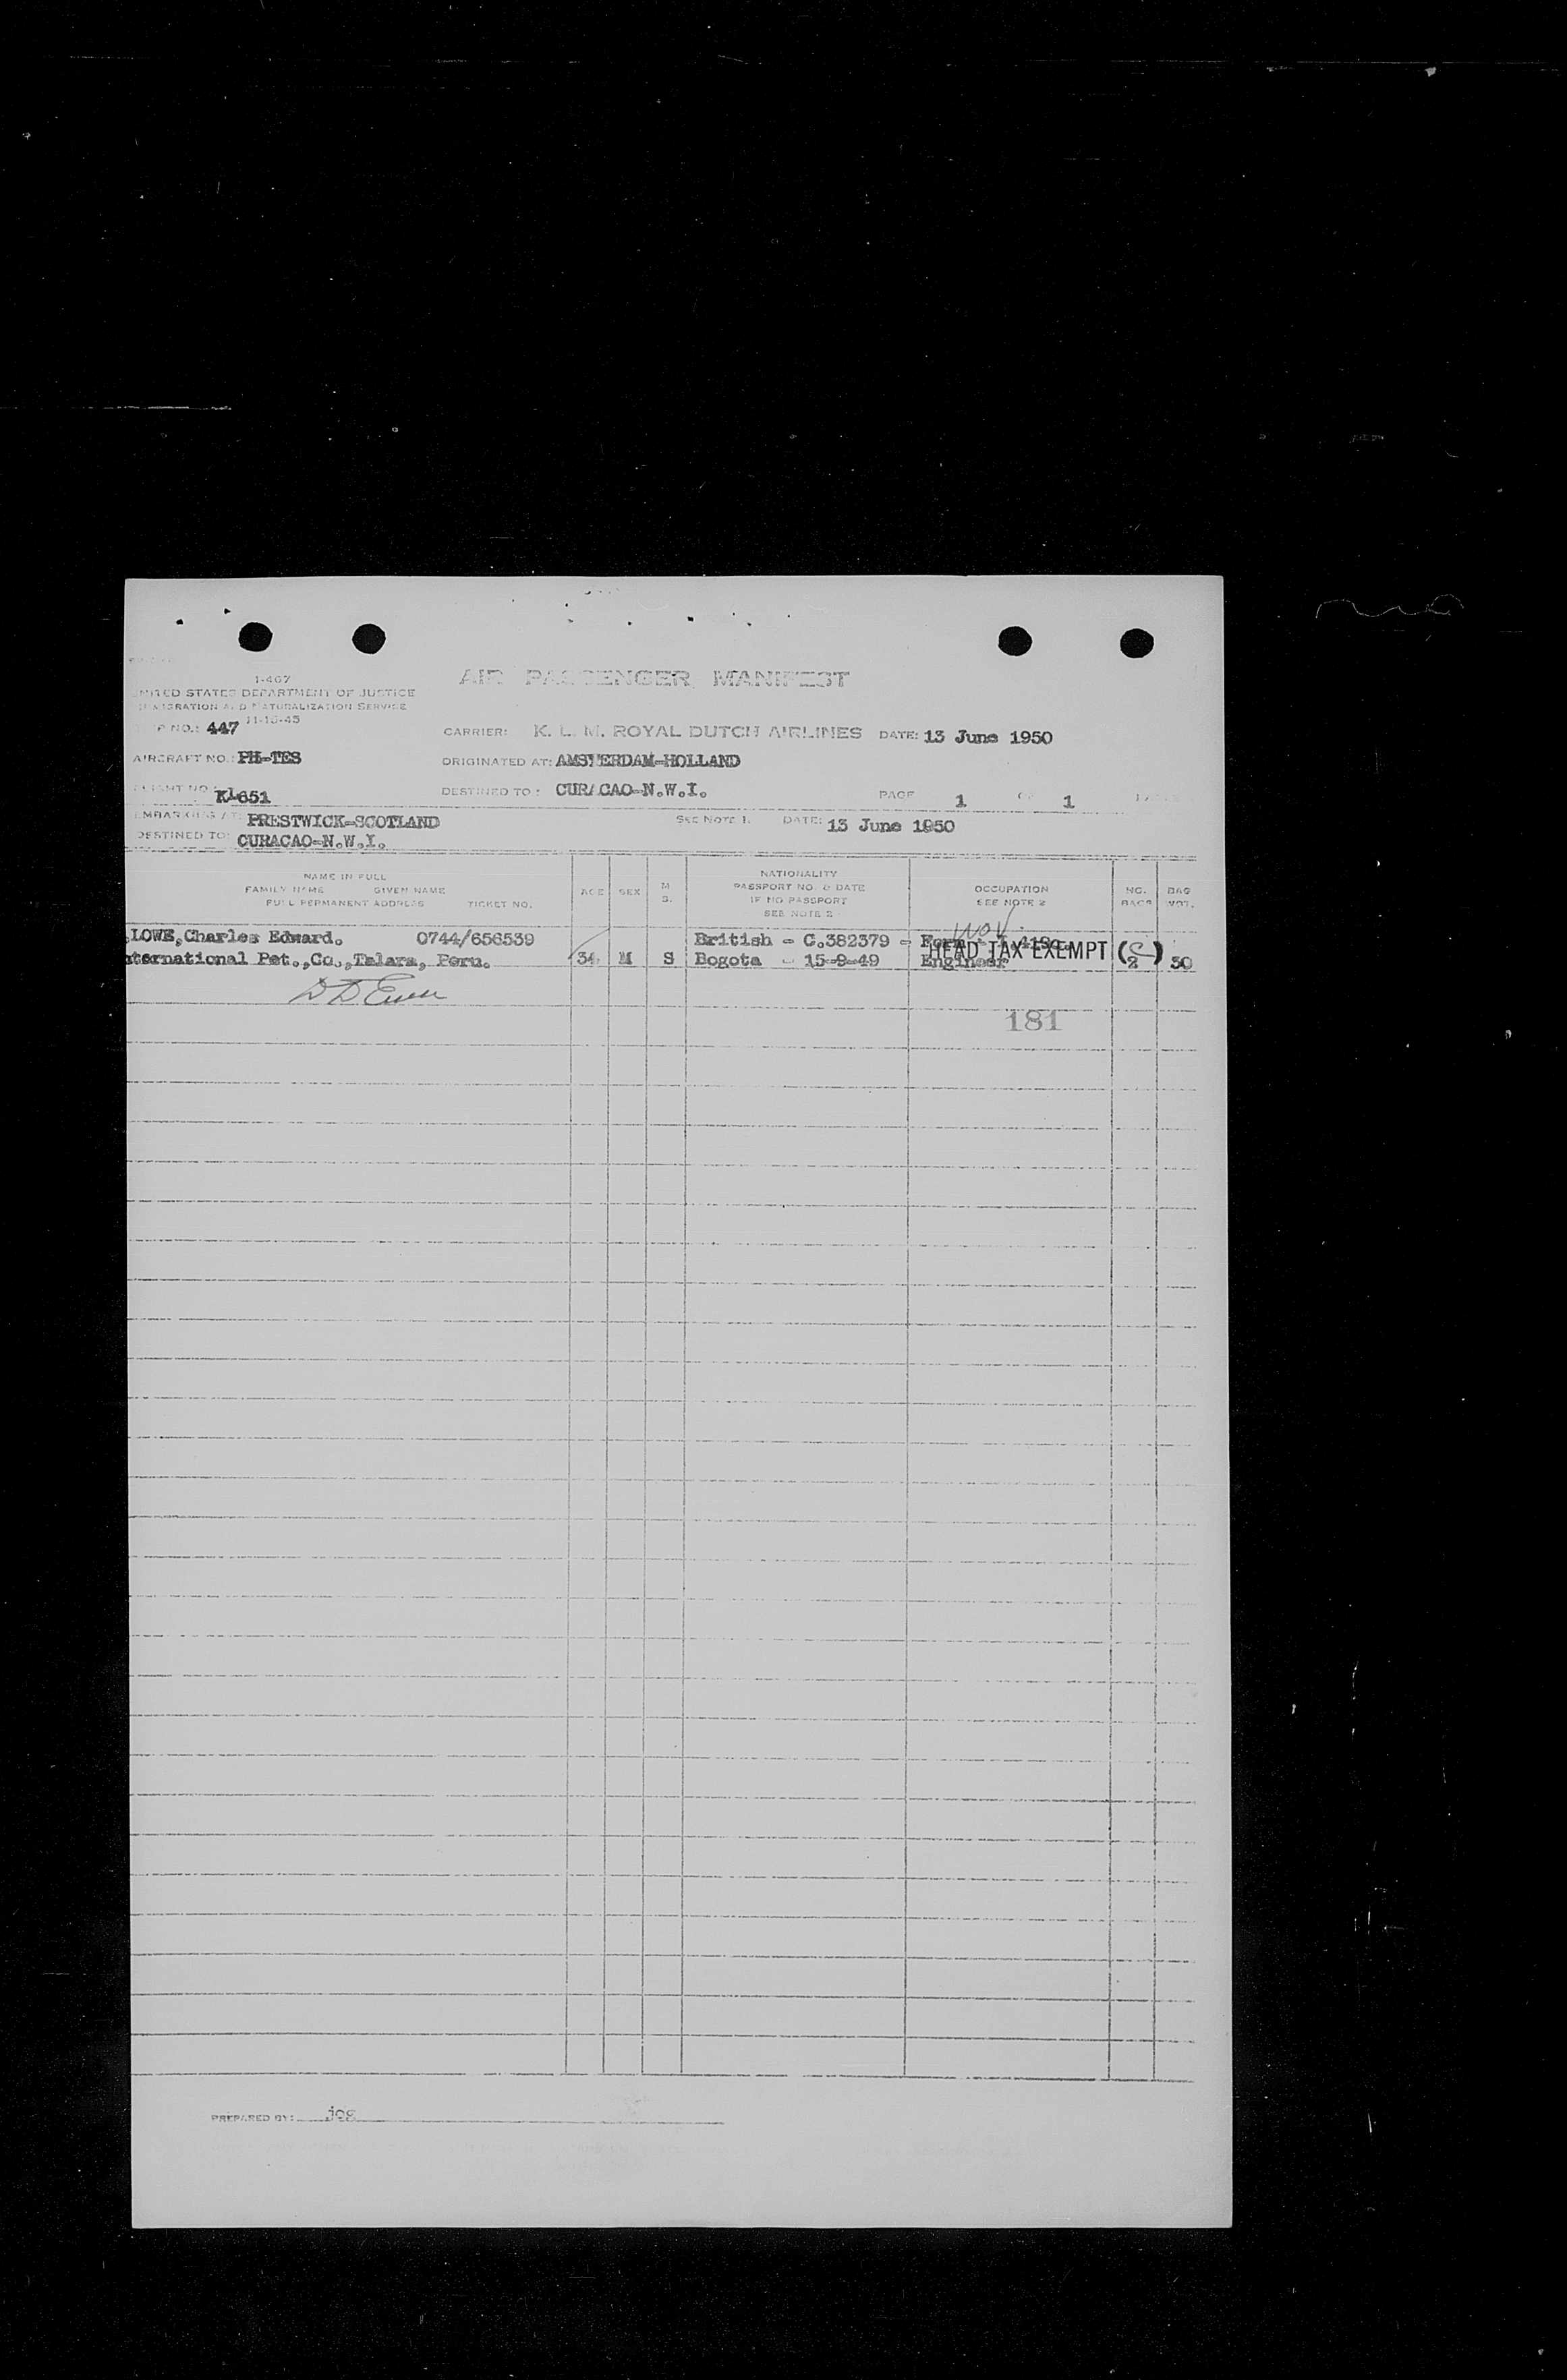 I-467
AIR PASSENGER MANIFEST
UNITED STATES DEPARTMENT OF JUSTICE
IMMIGRATION AND NATURALIZATION SERVICE
11-15-45
NO.: 447
CARRIER: K. L. M. ROYAL DUTCH AIRLINES DATE: 13 June 1950
AIRCRAFT NO.: PH-TES ORIGINATED AT: AMSTERDAM-HOLLAND
FLIGHT NO. KL651 DESTINED TO: CURACAO-N.W.I. PAGE 1 OF 1
EMBARKING AT: PRESTWICK-SCOTLAND SEE NOTE 1. DATE: 13 June 1950
DESTINED TO: CURACAO-N.W.I.
NAME IN FULL
FAMILY NAME GIVEN NAME
FULL PERMANENT ADDRESS TICKET NO.
AGE SEX M S.
NATIONALITY
PASSPORT NO. & DATE
IF NO PASSPORT
SEE NOTE 2
OCCUPATION
SEE NOTE 2
NO. BAGS
BAG WGT.
LOWE, Charles Edward. 0744/656539 British - C.382379 - Form
nternational Pet.,Co.,Talara, Peru. 34 M S Bogota - 15-9-49 Engineer 2 30
WOV
HEAD TAX EXEMPT
181
PREPARED BY: